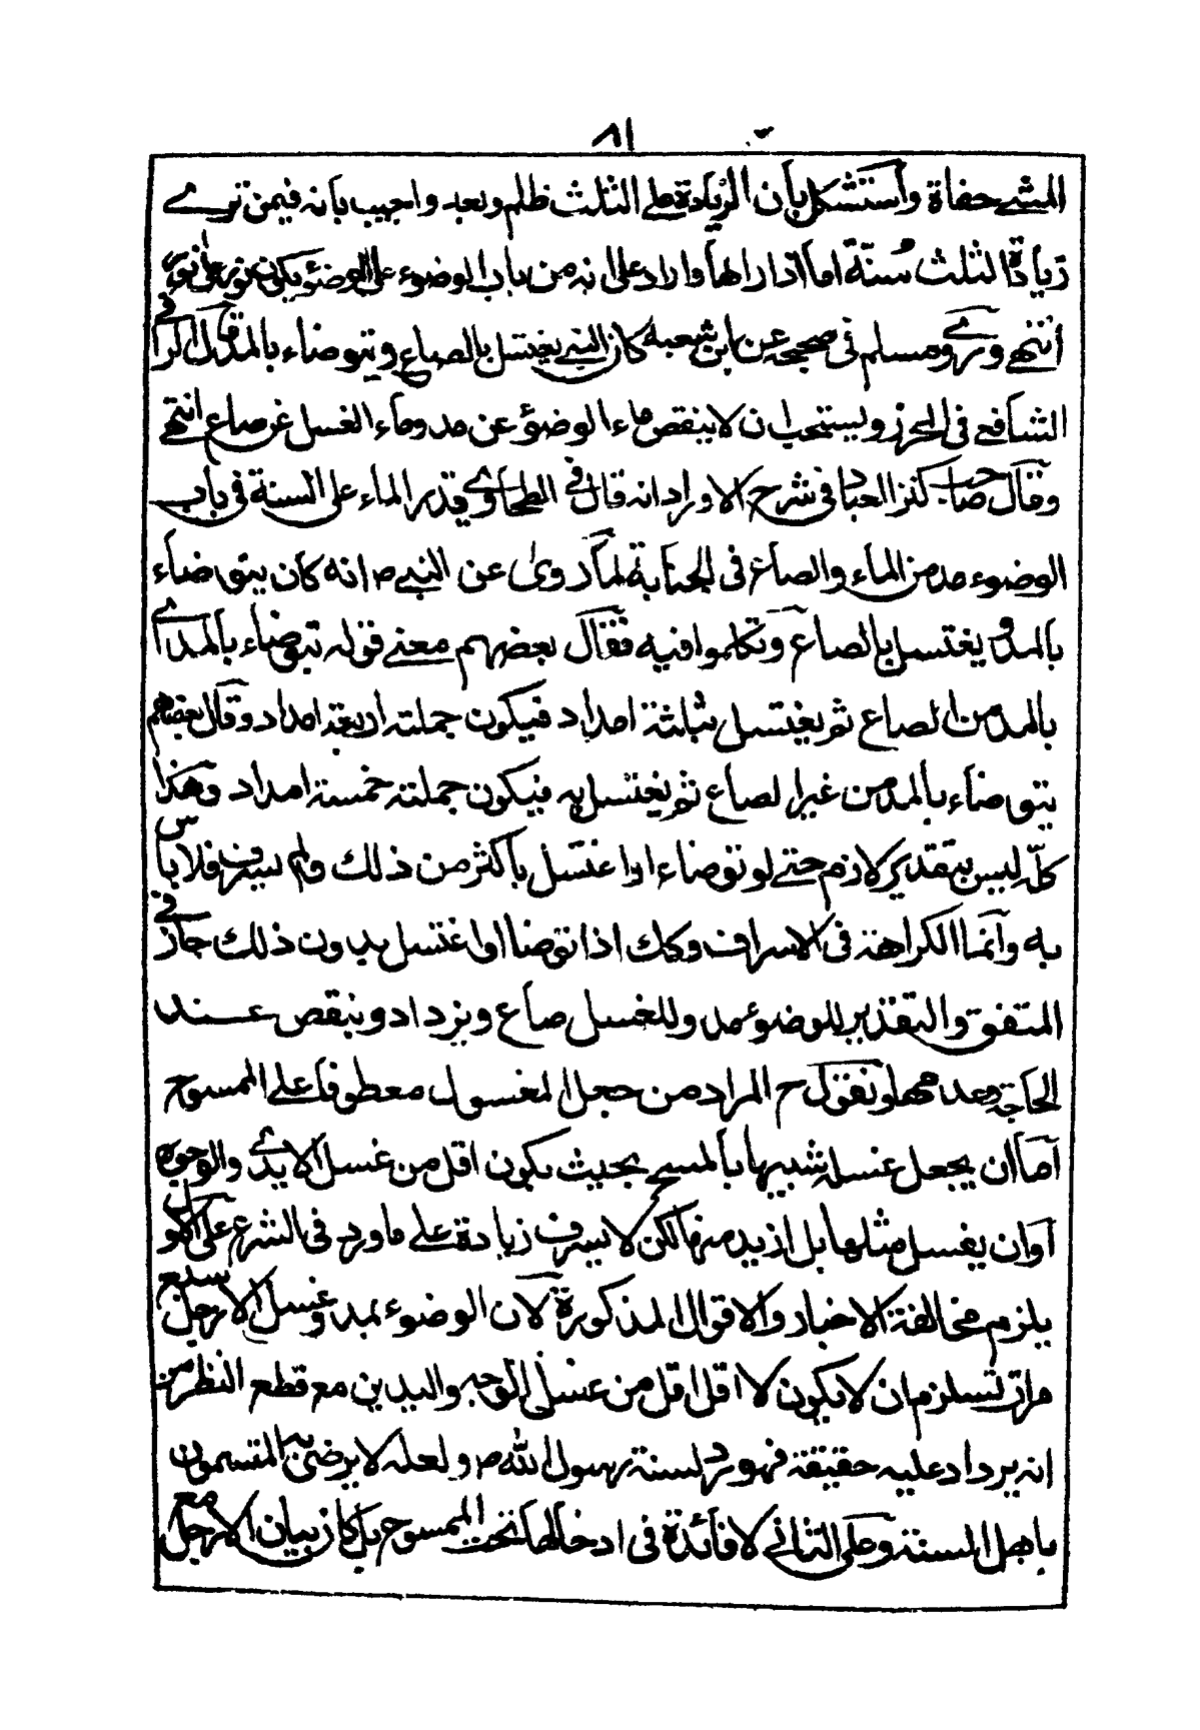 ٨١
المشے حفاة واستشكل بأن الزيادة على الثلث ظلم وتعد واجيب بانه فيمن ترے
زيادة الثلث سنة اما اذا راٰها واراد على انه من باب الوضوء على الوضوء يكون نور على نور
انتهے وروے مسلم فى صحيحه عن ابن شعبه كان النبے يغتسل بالصاع ويتوضاء بالمد قال الرافے
الشافعے فى المحرر ويستحب ان لا ينقص ماء الوضوء عن مد وماء الغسل عن صاع انتهے
وقال صاحب كنز العباد فى شرح الاوراد انه قال فے الطحاوے قدر الماء على السنة فى باب
الوضوء مد من الماء والصاع فى الجنابة لما روى عن النبے ص انه كان يتوضاء
بالمد ويغتسل بالصاع وتكلموا فيه فقال بعضهم معنے قوله توضاء بالمد اے
بالمد من الصاع ثم يغتسل بثلثة امداد فيكون جملته اربعة امداد وقال بعضهم
يتوضاء بالمد من غير الصاع ثم يغتسل به فيكون جملته خمسة امداد وهذا
كلّه ليس بتقدير لازم حتے لو توضاء او اغتسل باكثر من ذلك ولم يسرف فلا باس
به وانما الكراهة فى الاسراف وكك اذا توضا او اغتسل بدون ذلك جاز فے
المتفق والتقدير للوضوء مد وللغسل صاع ويزداد وينقص عند
الحاجة وعدمها ونقول ح المراد من جعل المغسول معطوفا على الممسوح
اما ان يجعل غسله شبيها بالمسح بحيث يكون اقل من غسل الايدے والوجوه
او ان يغسل مثلها بل ازيد منها لكن لا يسرف زيادة على ما ورد فى الشرع على الاول
يلزم مخالفة الاخبار والاقوال المذكورة لان الوضوء بمد وغسل الارجل سبع
مرات تستلزم ان لا يكون لا اقل اقل من غسل الوجه واليدين مع قطع النظر من
انه يرداد عليه حقيقة فهو رد لسنة رسول الله ص ولعله لا يرضى به المتسمون
باهل السنة وعلى الثانے لا فائدة فى ادخالها تحت الممسوح بل كان بيان الارجل مع